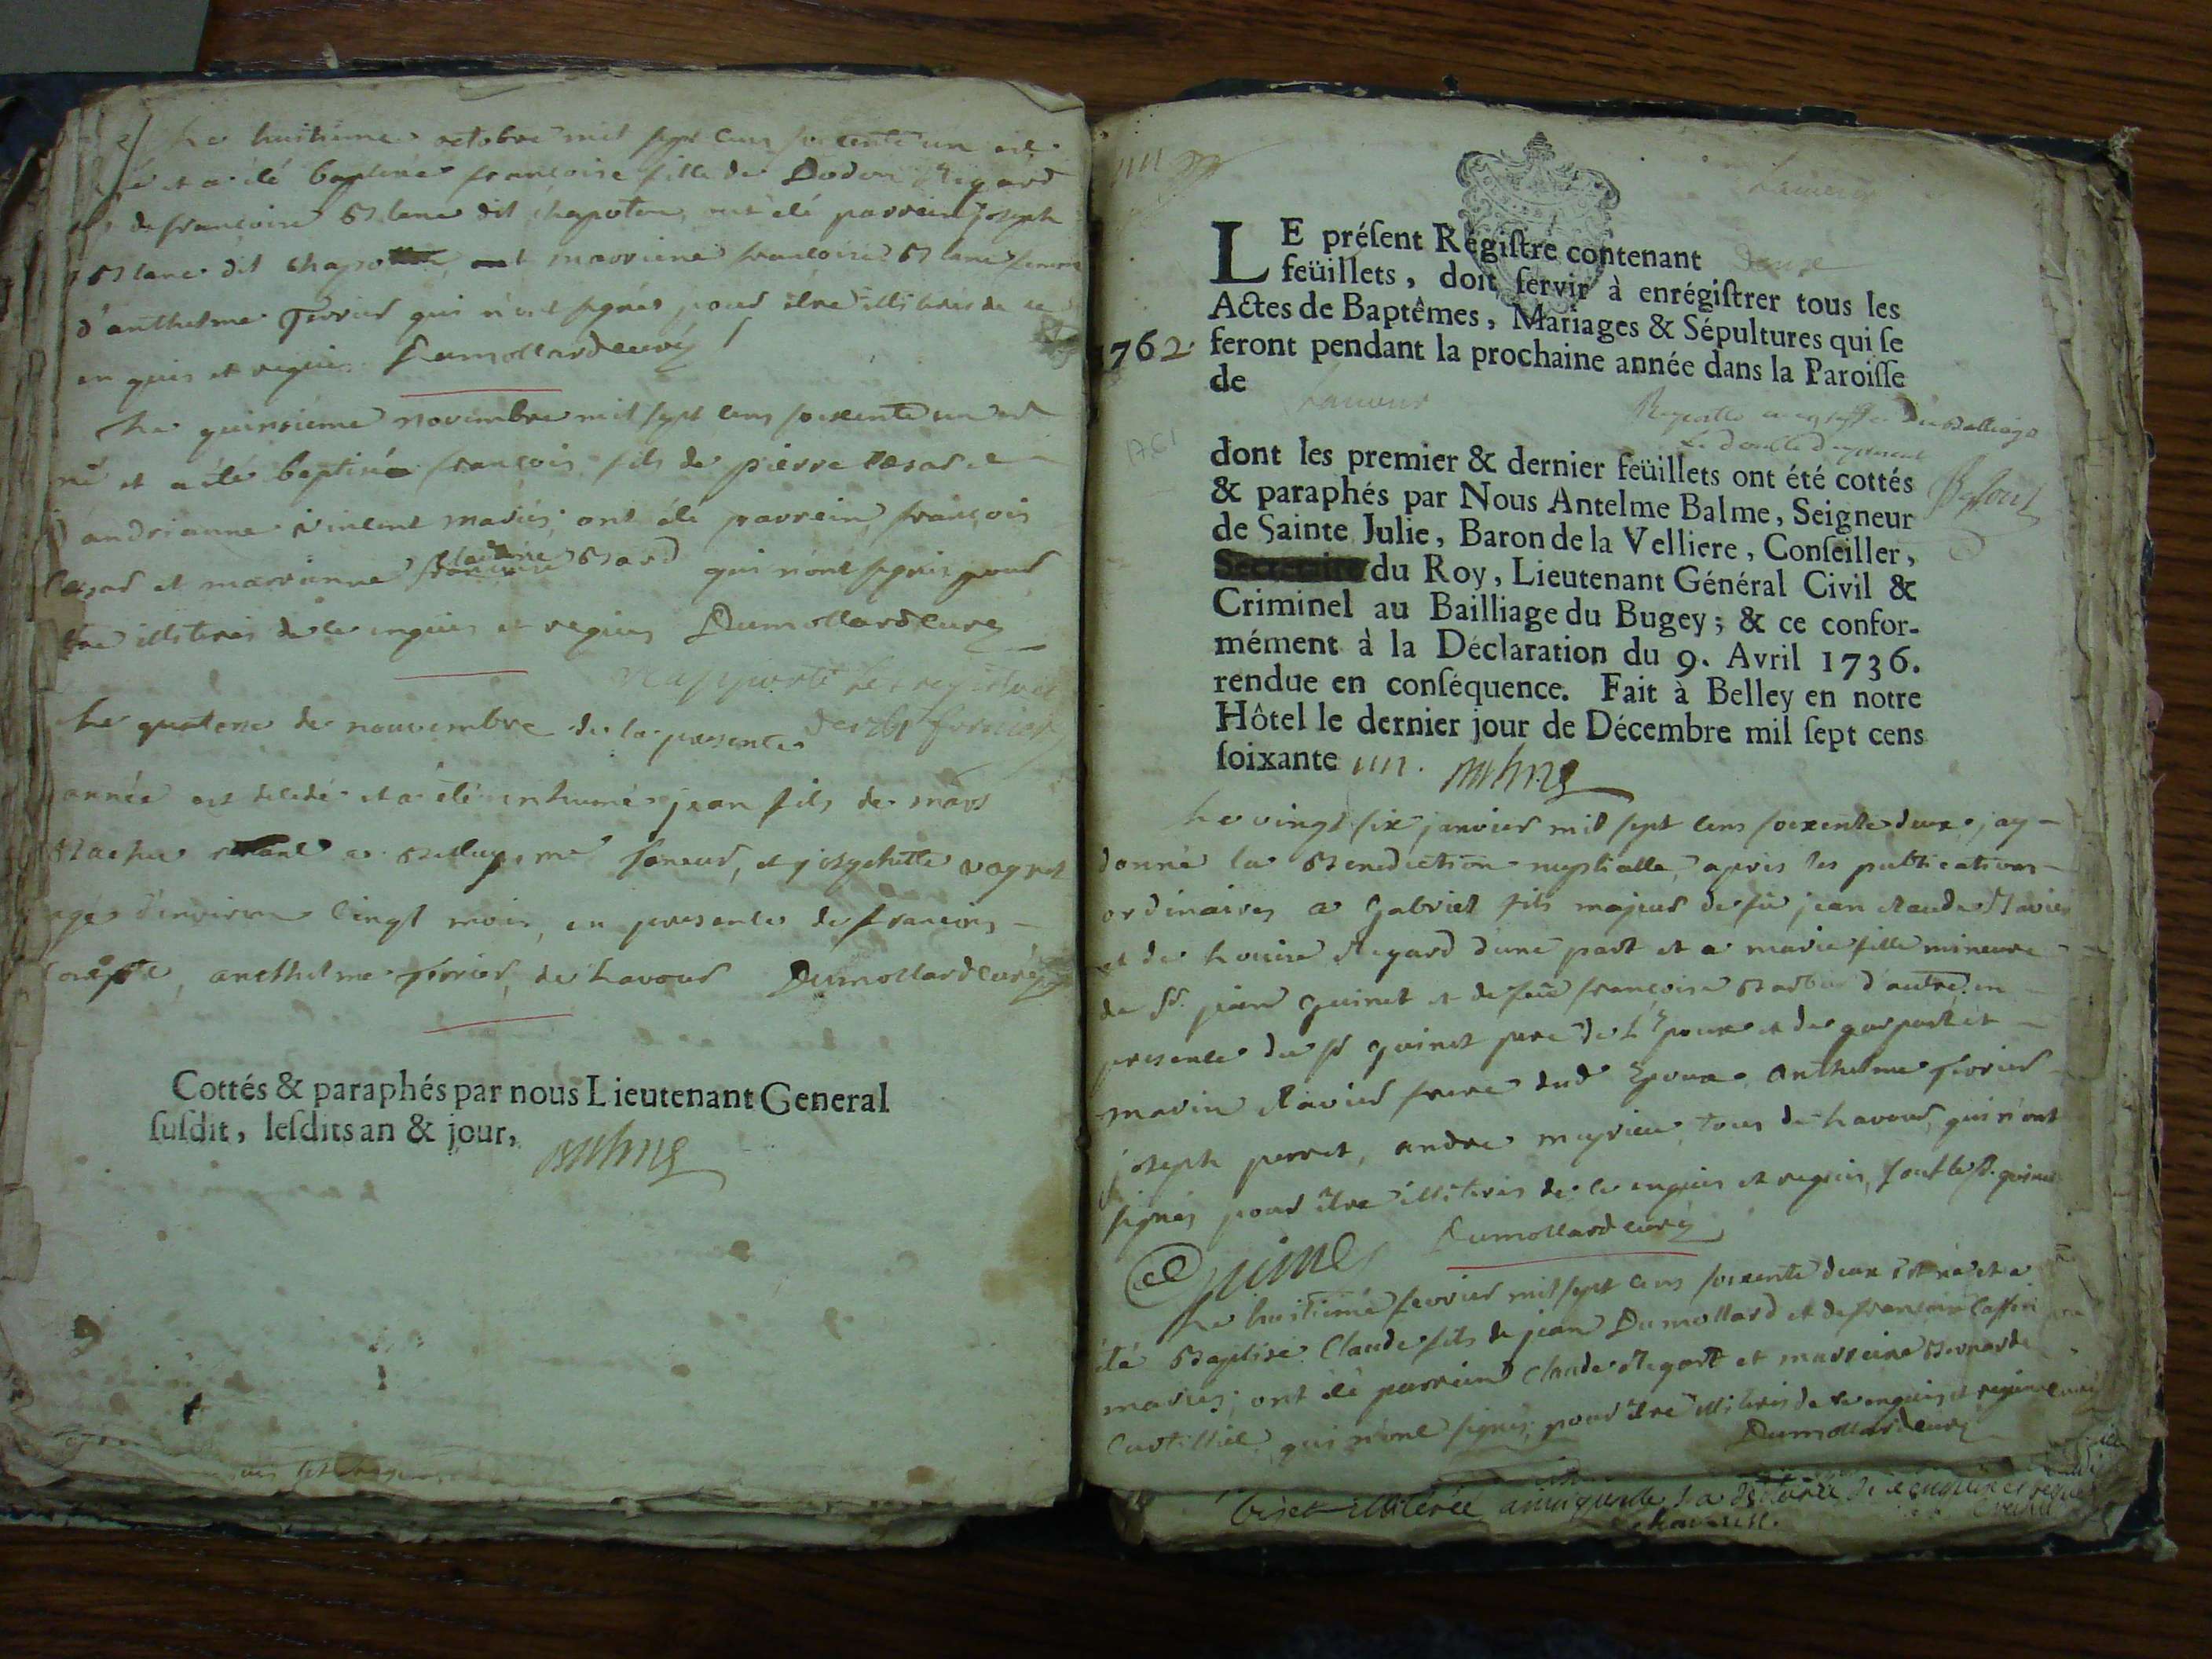 Le huitieme octobre mil sept cens soixente un est
né et a été baptisée françoise fille de Dodon Regard
et de françoise Blanc dit chapoton, ont été parrein joseph
Blanc dit chapo et marriene francoise Blanc femme
d'anthelme ferrier qui n'ont signés pour être illiterés de ce
enquis et requis Dumollard curé
Le quinsieme novembre mil sept cens soixente un est
né et a été baptisé françois fils de pierre Cesar et
andrianne vincent mariés; ont été parrein françois
Cesar et marrienne claudine Bard qui n'ont signés pour
être illiterés de ce enquis et requis Dumollard curé
Rapporté le registre
Le quatorse de nouvembre de la presente
année est decedé et a été inhumé jean fils de marc
a Belley, me et josephette
agé d'environ vingt mois, en presence de francois
anthelme ferrier, de Lavour Dumollard curé
Cottés & paraphés par nous Lieutenant General
ſuſdit, leſdits an & jour,
Balme
un
Lavour
LE préſent Régiſtre contenant deux
feüillets, doit ſervir à enrégiſtrer tous les
Actes de Baptêmes, Mariages & Sépultures qui ſe
1762. feront pendant la prochaine année dans la Paroiſſe
de Lavour
1761
dont les premier & dernier feüillets ont été cottés
& paraphés par Nous Antelme Balme, Seigneur
de Sainte Julie, Baron de la Velliere, Conſeiller,
du Roy, Lieutenant Général Civil &
Criminel au Bailliage du Bugey; & ce confor-
mément à la Déclaration du 9. Avril 1736.
rendue en conſéquence. Fait à Belley en notre
Hôtel le dernier jour de Décembre mil ſept cens
ſoixante un. Balme
Le vingt six janvier mil sept cens soixente deux j'ay
donné la Benediction nuptialle, apres les publications
ordinaires a Gabriel fils majeur de fû jean claude Ravier
et de Louise Regard d'une part et a marie fille mineure
de Sr. jean guinet et de feüe françoise Barbier d'autre, en
presence du sr guinet pere de l'Epouse et de gaspard et
marin Ravier frere dud Epoux, anthelme ferrier
joseph perret, andré meyrieu, tous de Lavour, qui n'ont
signés pour être illiterés de ce enquis et requis, sauf le Sr. guinet
guinet Dumollard curé
Le huitieme fevrier mil sept cens soixente deux est né et a
été Baptisé Claude fils de jean Dumollard et de francoise
mariés; ont été parrein Claude Regard et marreine Bernarde
qui n'ont signés; pour être illiterés de ce enquis et requis
Dumollard curé
illiterée ainsi qu'elle l'a déclaré de ce enquise et requise